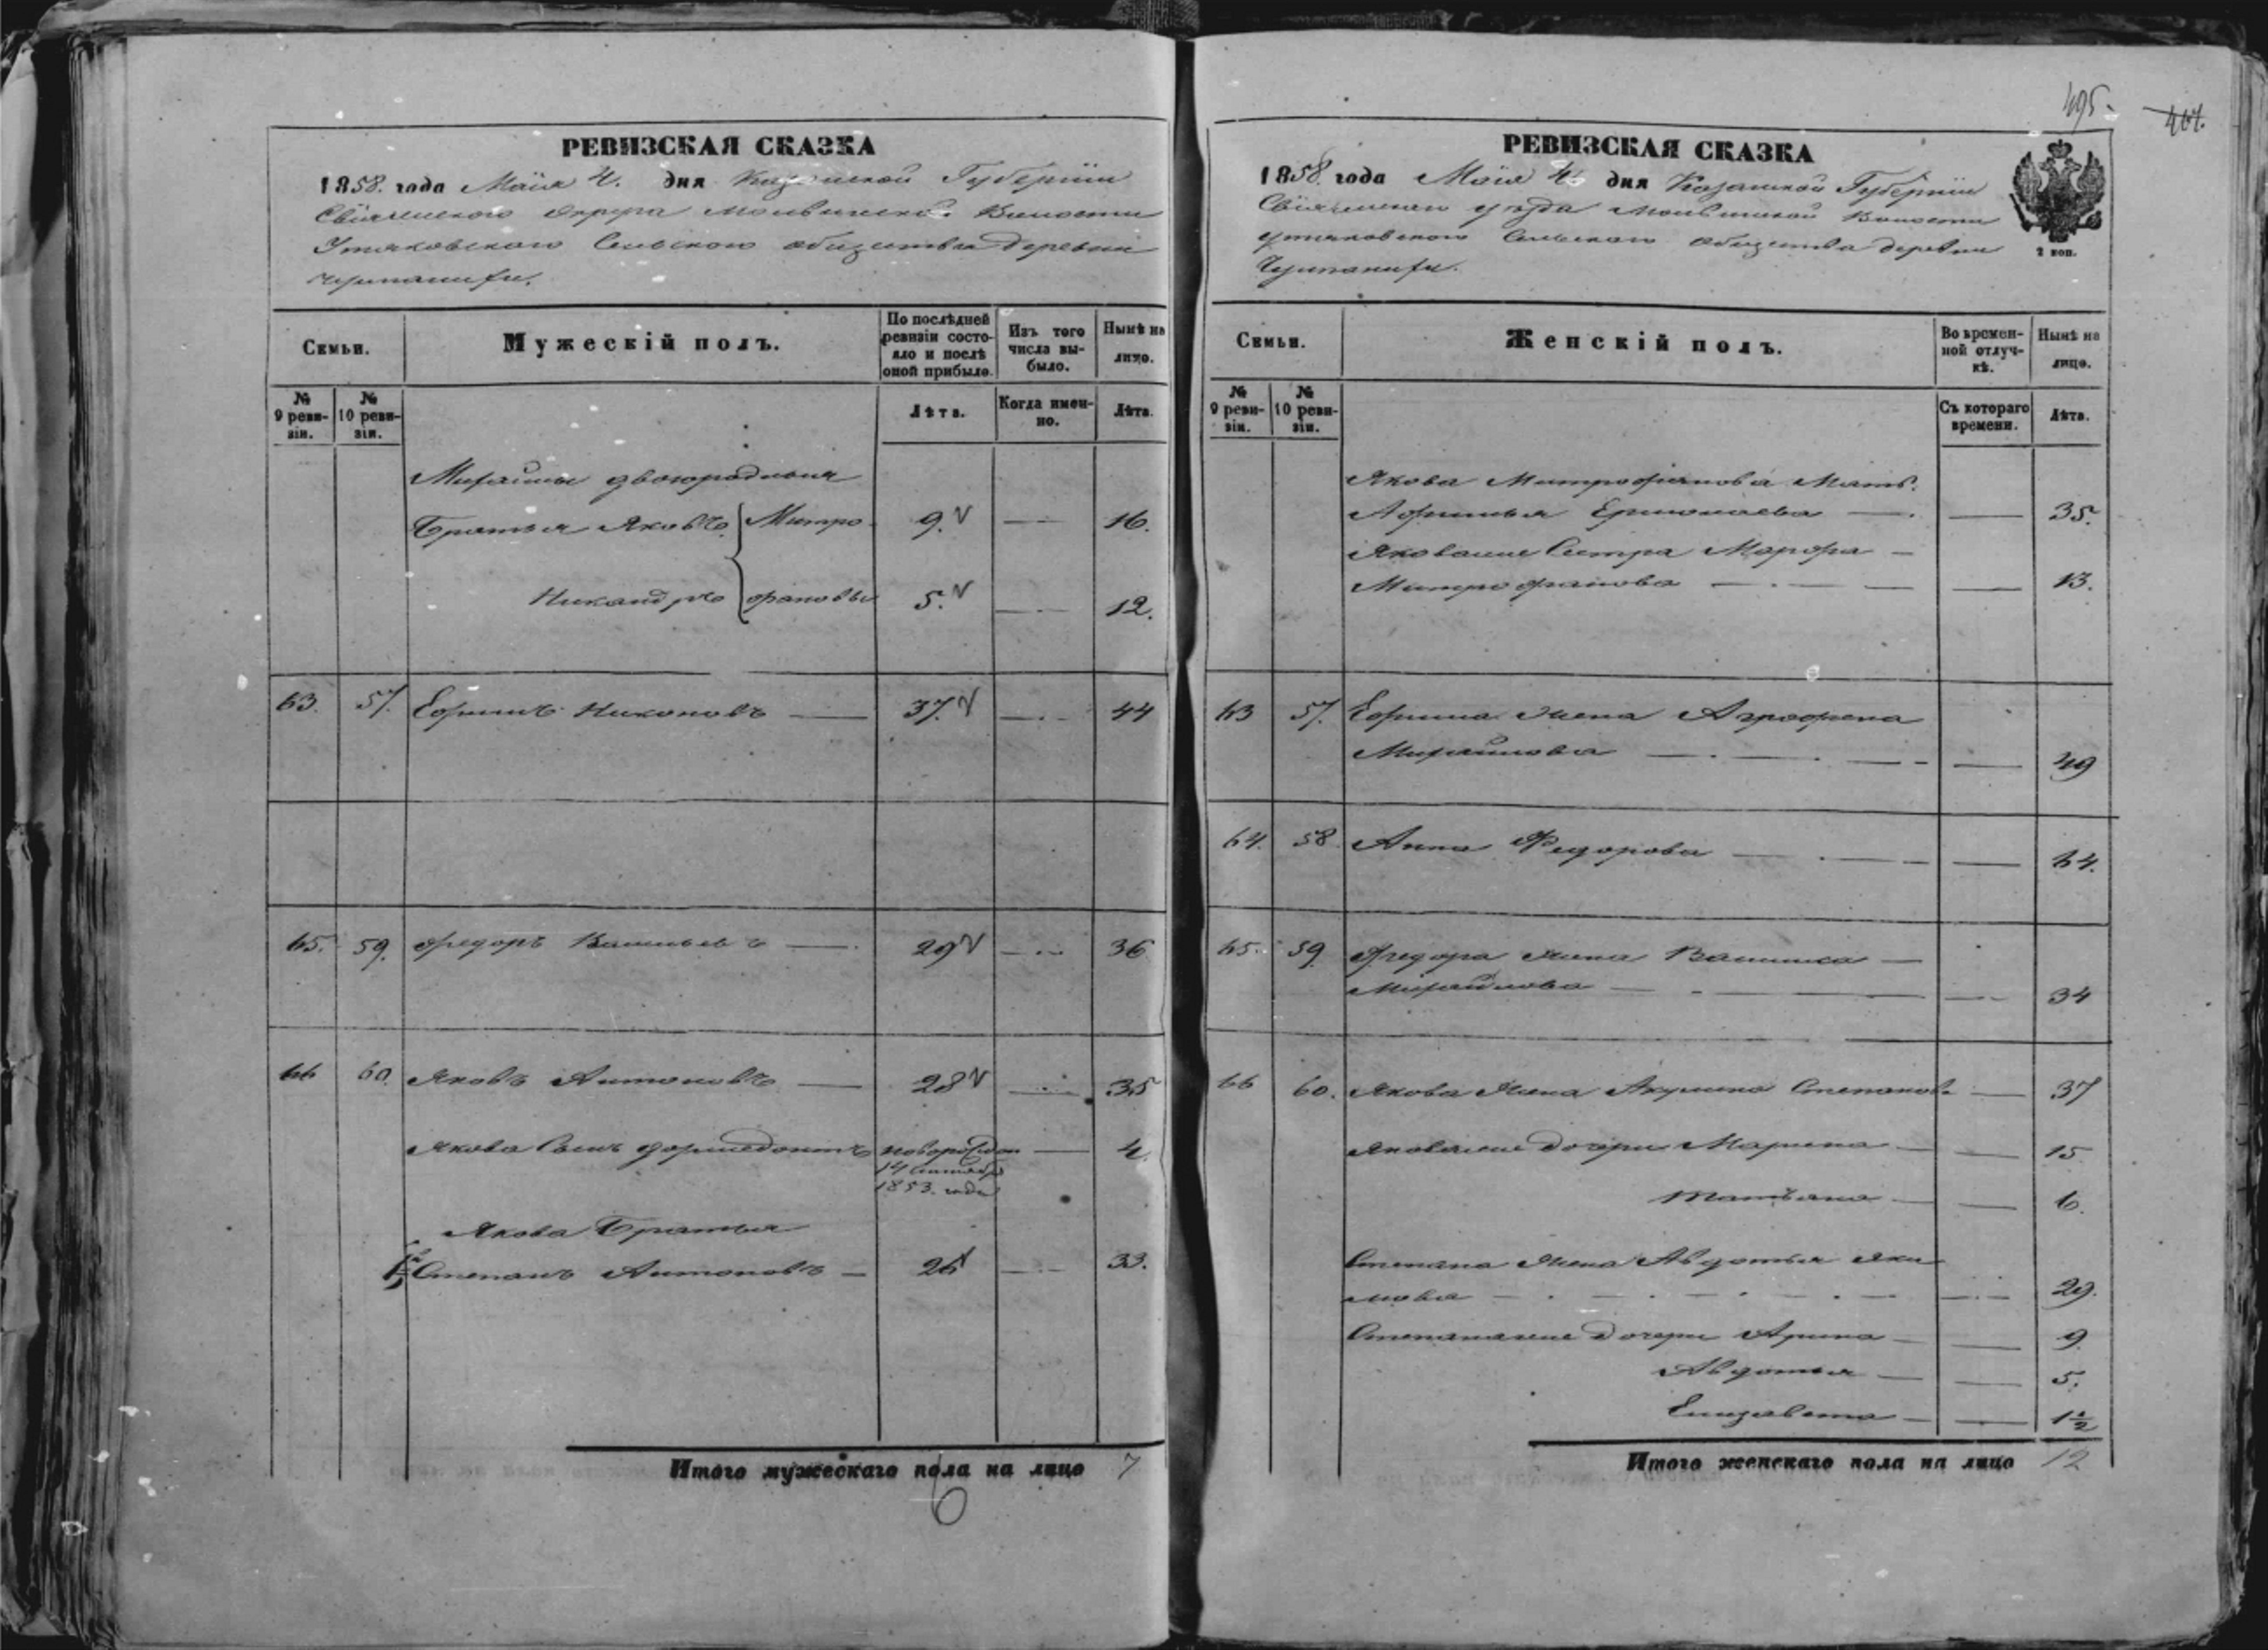 РЕВИЗСКАЯ СКАЗКА
1858. года Маія 4. дня Казанской Губерніи
Свіяжскаго округа Волости
Сельскаго общества деревни
Семьи.
Мужескій полъ.
По послѣдней ревизіи состояло и послѣ оной прибыло.
Изъ того числа выбыло.
Нынѣ на лицо.
№ 9 ревизіи.
№ 10 ревизіи.
Лѣта.
Когда именно.
Лѣта.
Михайлы двоюродныя
Братья Яковъ. Митро- 9. 16.
Никандръ фановы 5. 12.
63. 57. Ефимъ Никоновъ 37. 44
65. 59. Федоръ Васильевъ 29 36
66 60. Яковъ Антоновъ 28 35
Якова Сынъ новорожден 4.
14 Сентября
1853. года
Якова Братья
Степанъ Антоновъ 26 33.
Итого мужескаго пола на лицо 7
6
495.
РЕВИЗСКАЯ СКАЗКА
1858. года Маія 4 дня Казанской Губерніи
уѣзда Волости
Сельскаго общества деревни
2 коп.
Семьи.
Женскій полъ.
Во временной отлучкѣ.
Нынѣ на лицо.
№ 9 ревизіи.
№ 10 ревизіи.
Съ котораго времени.
Лѣта.
Якова Митрофанова Мать.
Афимья Ермолаева 35.
Яковлие Сестра Марфа
Митрофанова 13.
63 57. Ефима жена Аграфена
Михайлова 49
64. 58 Анна Федорова 64.
65. 59. Федора жена
Михайлова 34
66 60. Якова жена Акулина Степанов. 37
Яковлие дочери Марина 15
Татьяна 6.
Степана жена Авдотья Яки
мова 29.
Степановые дочери Арина 9
Авдотья 5.
Елизавета 1 1/2
Итого женскаго пола на лицо 12